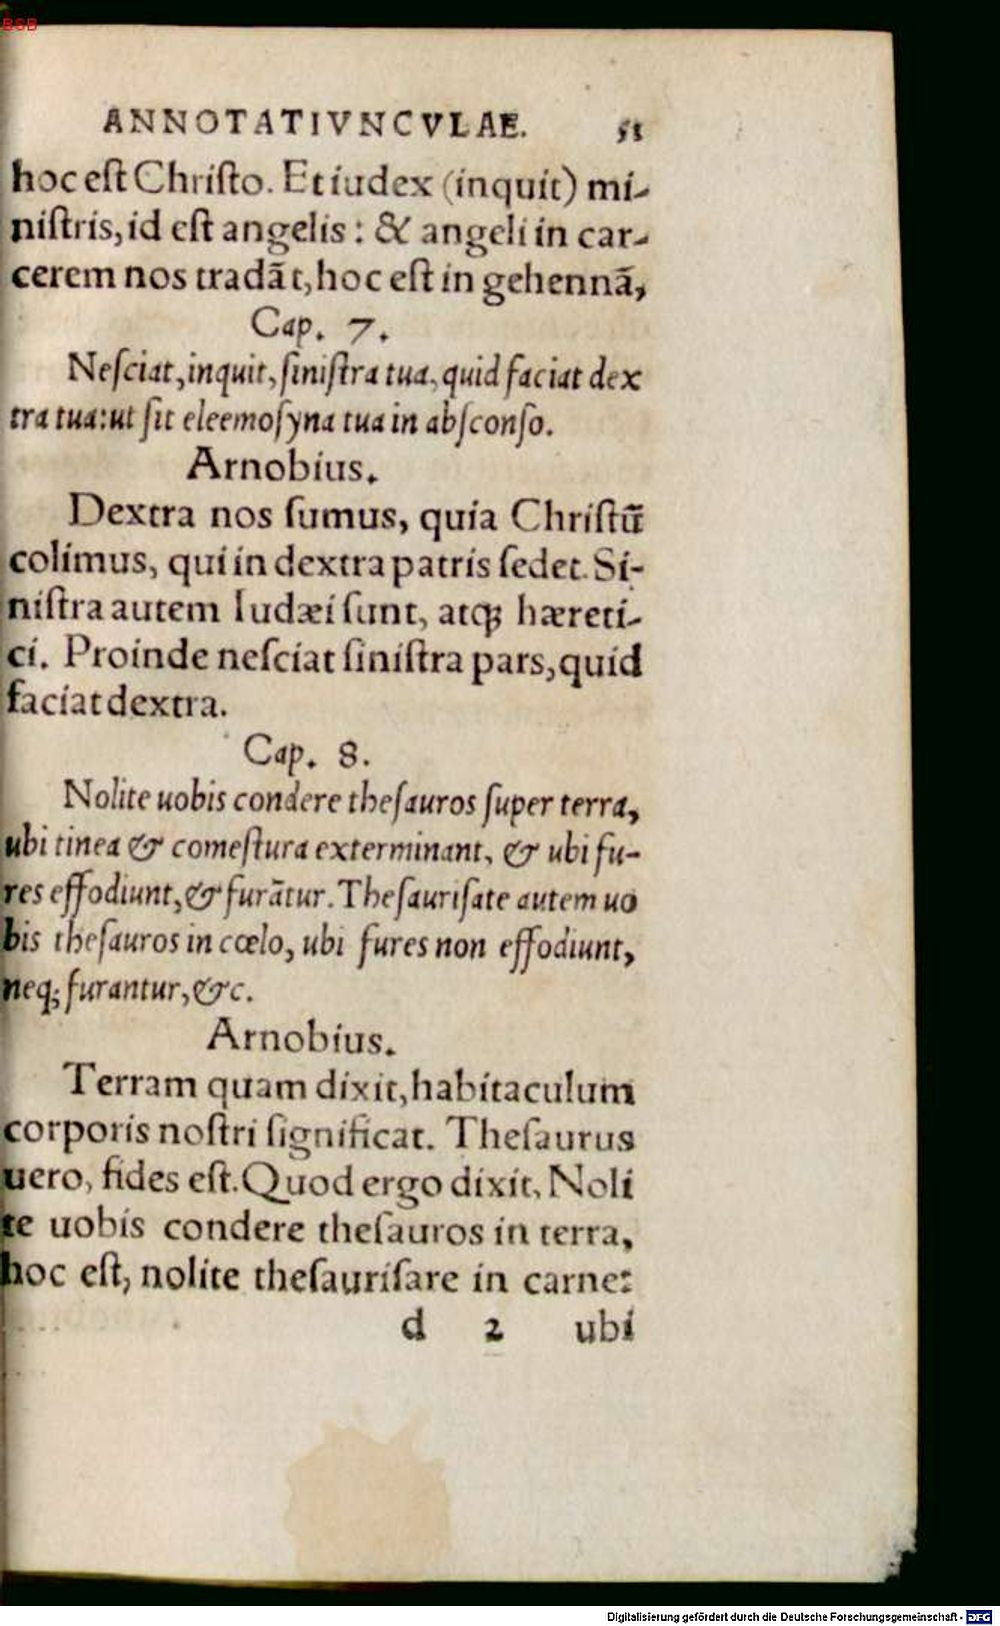 BSB
ANNOTATIVNCVLAE. 51
hoc eſt Chriſto. Et iudex (inquit) mi-
niſtris, id eſt angelis: & angeli in car-
cerem nos tradãt, hoc eſt in gehennã,
Cap. 7.
Neſciat, inquit, ſiniſtra tua, quid faciat dex
tra tua: ut ſit eleemoſyna tua in abſconſo.
Arnobius.
Dextra nos ſumus, quia Chriſtũ
colimus, qui in dextra patris ſedet. Si-
niſtra autem Iudæi ſunt, atq; hæreti-
ci. Proinde neſciat ſiniſtra pars, quid
faciat dextra.
Cap. 8.
Nolite uobis condere theſauros ſuper terra,
ubi tinea & comeſtura exterminant, & ubi fu-
res effodiunt, & furãtur. Theſauriſate autem uo
bis theſauros in cœlo, ubi fures non effodiunt,
neq; furantur, &c.
Arnobius.
Terram quam dixit, habitaculum
corporis noſtri ſignificat. Theſaurus
uero, fides eſt. Quod ergo dixit, Noli
te uobis condere theſauros in terra,
hoc eſt, nolite theſauriſare in carne:
d 2 ubi
Digitalisierung gefördert durch die Deutsche Forschungsgemeinschaft - DFG